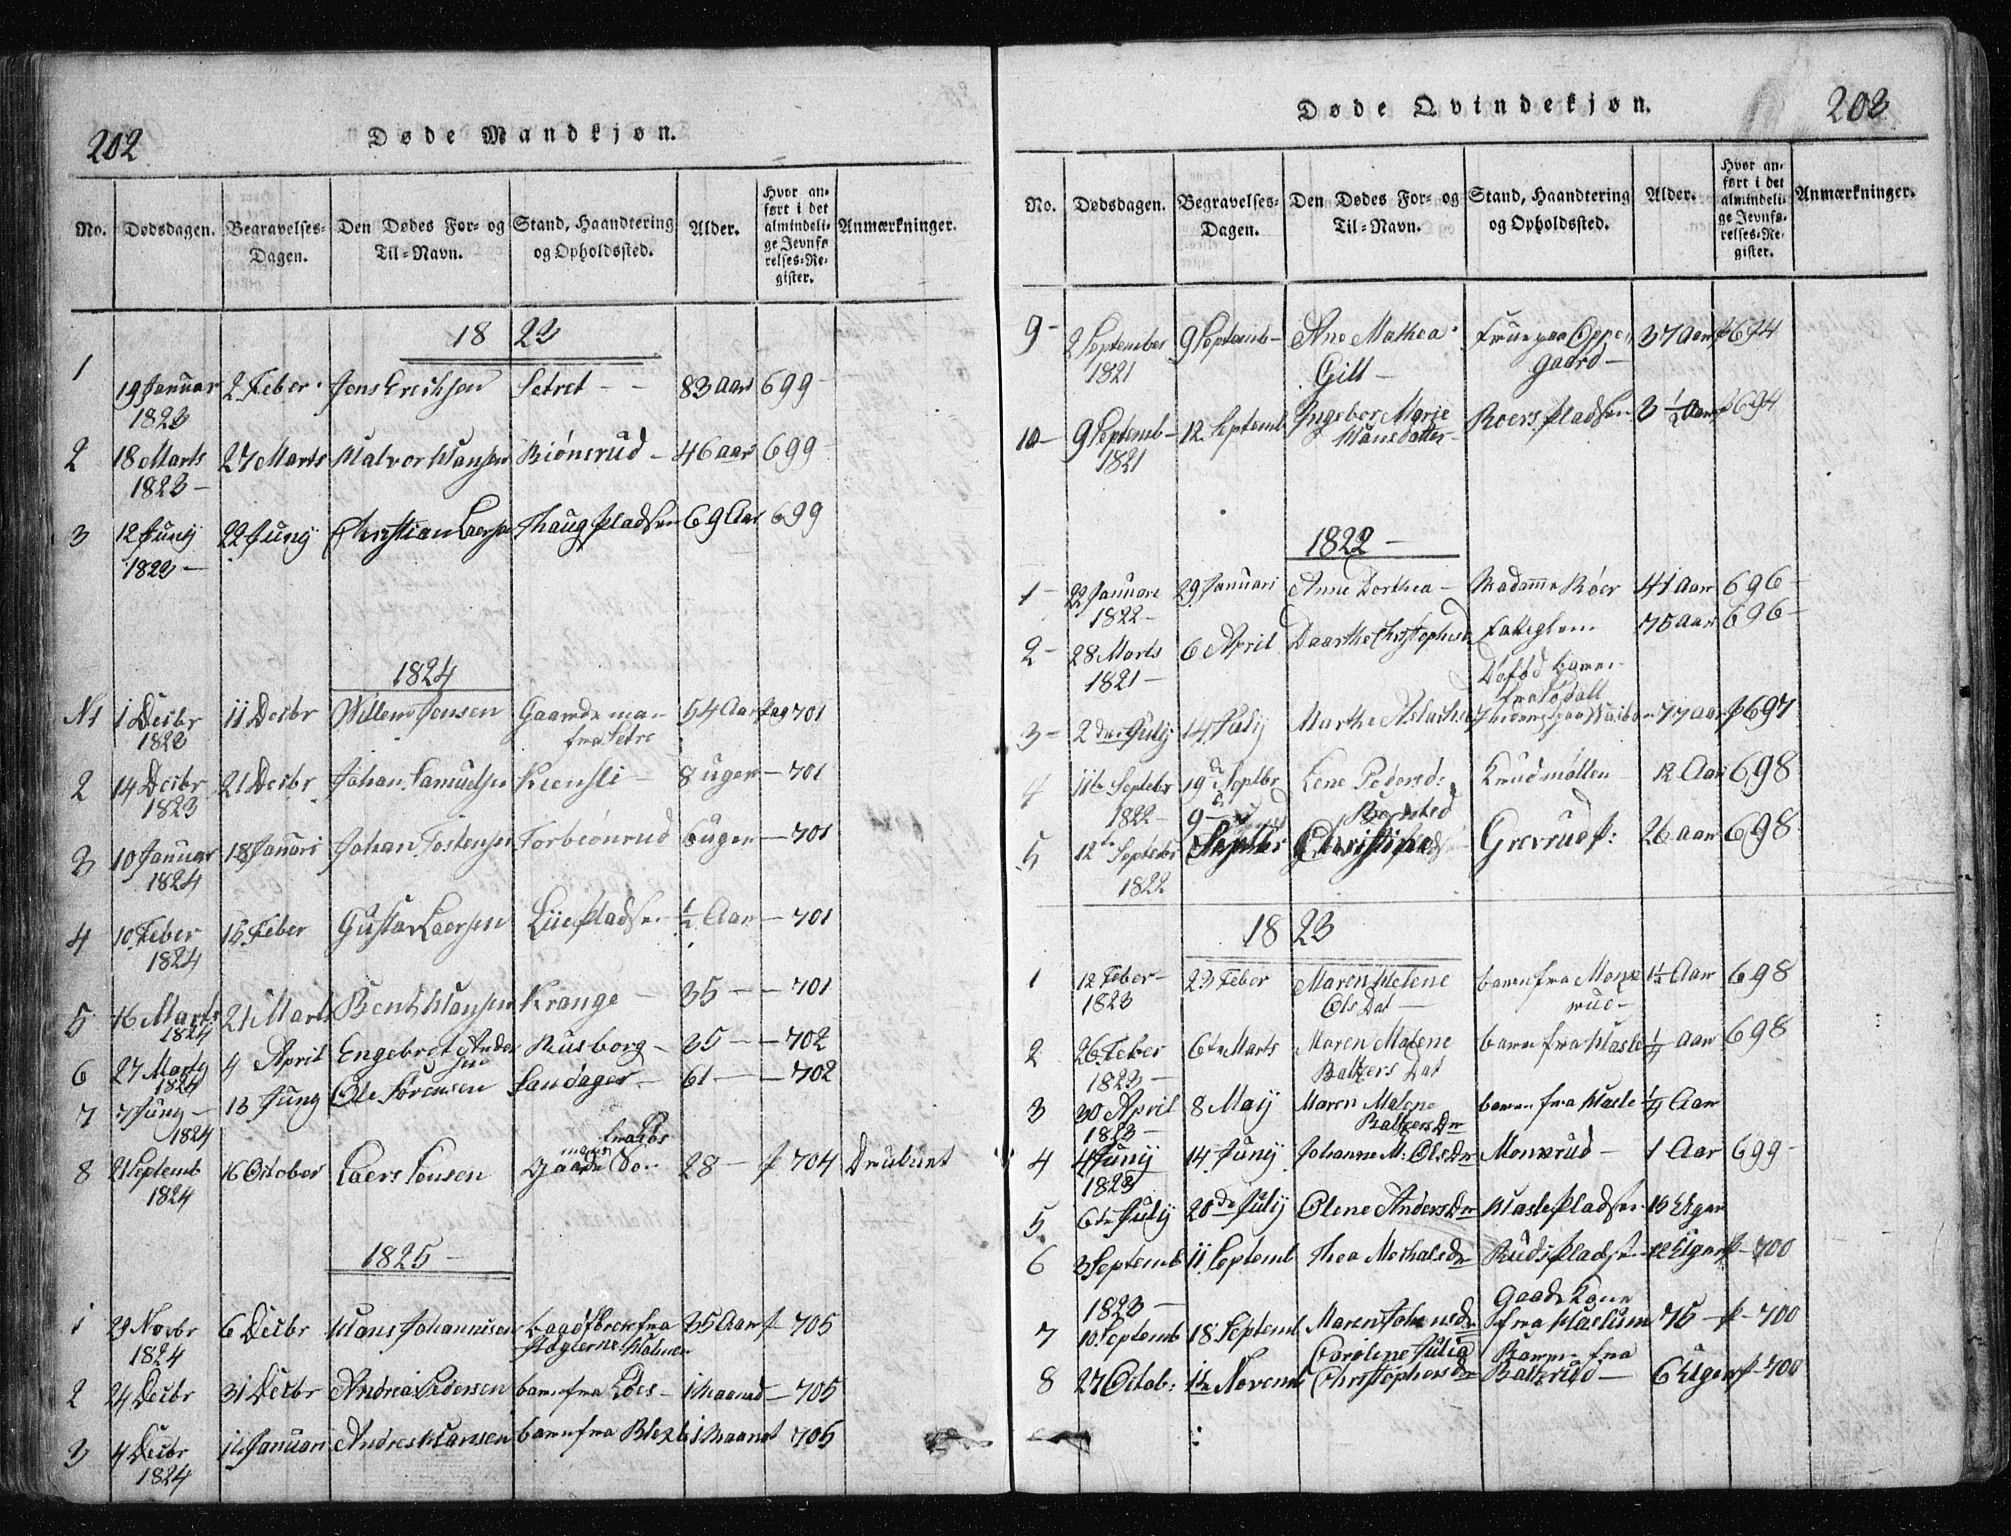 202
Døde Mandkjøn.
No. Dødsdagen. Begravelses-Dagen. Den Dødes For- og Til-Navn. Stand, Haandtering og Opholdssted. Alder. Hvor anført i det almindelige Jevnførelses-Register. Anmærkninger.
18 23
1 19 Januar 1823 2 Feber Jens Erichsen Setret 83 aar 699
2 18 Marts 1823 27 Marts Halvor Hansen Biönsrud 46 aar 699
3 12 Juny 1823 22 Juny Christian Laersen Haugpladsen 69 Aar 699
1824
N1 1 Decbr 1823 11 Decbr Willem Jensen Gaardeman fra Setre 54 Aar pag 701
2 14 Decbr 1823 21 Decbr Johan Samuelsen Kiensli 8 uger 701
3 10 Januar 1824 18 Januari Johan Tostensen Torbiönrud 6 uger 701
4 10 Feber 1824 15 Feber Gustav Laersen Liepladsen ½ Aar 701
5 16 Marts 1824 21 Marts Bent Hansen Krange 35 701
6 27 Marts 1824 4 April Engebret Andersen Rusborg 35 702
7 7 Juny 1824 13 Juny Ole Sørensen Sandager 61 702
8 21 Septemb 1824 16 October Laers Jonsen 28 p 704 Druknet
1825
1 29 Novbr 1824 6 Decbr Hans Johannesen fra Holmen 35 Aar p 705
2 24 Decbr 31 Decbr Andrea Pedersen barn fra Ødes 1 Maaned 705
3 4 Decbr 1824 Januari Andres Hansen barn fra 1 Maanet 705
203
Døde Qvindekjøn.
No. Dødsdagen. Begravelses-Dagen. Den Dødes For- og Til-Navn. Stand, Haandtering og Opholdssted. Alder. Hvor anført i det almindelige Jevnførelses-Register. Anmærkninger.
9 2 September 1821 9 Septemb Ane Mathea Gill Frue paa Oppegaard 37 Aar p 694
10 9 Septemb 1821 12 Septemb Ingebor Marie Hansdatter Roerspladsen 3 ½ Aar p 694
1822
1 22 Januari 1822 29 Januari Anne Dorthea Madamme Röer 41 Aar 696
2 28 Marts 1821 6 April Daarthe Christophersd 75 aar 696
Döfød barn fra
3 2den July 14 July Marthe 77 aar p 697
4 11te Septebr 1822 19d Septbr Lene Pedersd: Knudmöllen 12 Aar 698
5 12te Septebr 1822 Septbr Christine Grevrudp: 26 aar 698
18 23
1 12 Feber 1823 23 Feber Maren Helene Ols Dat barn fra Monerud 1½ Aar 698
2 26 Feber 1823 6te Marts Maren Malene Baltzers Dat barn fra Hasle ¼ Aar 698
3 30 April 1823 8 Maij Maren Malene Baltzers Dr barn fra Hasle ¼ Aar
4 4 Juny 1823 14 Juny Johanne M. Ols Dr Monnerud 1 Aar 699
5 6te July 20de July Olene Anders Dr Haslepladsen 13 Uger
6 3 Septemb 1823 11 Septemb Thea Mathisdr Rudspladse 12 Uger p 700
7 10 Septemb 18 Septemb Maren Johansdr Gaardkone fra Haslum 75 p 700
8 27 Octob: 1te Novemb Caroline Julia Christophersdr Barn fra Baltzrud 6 Uger p 700